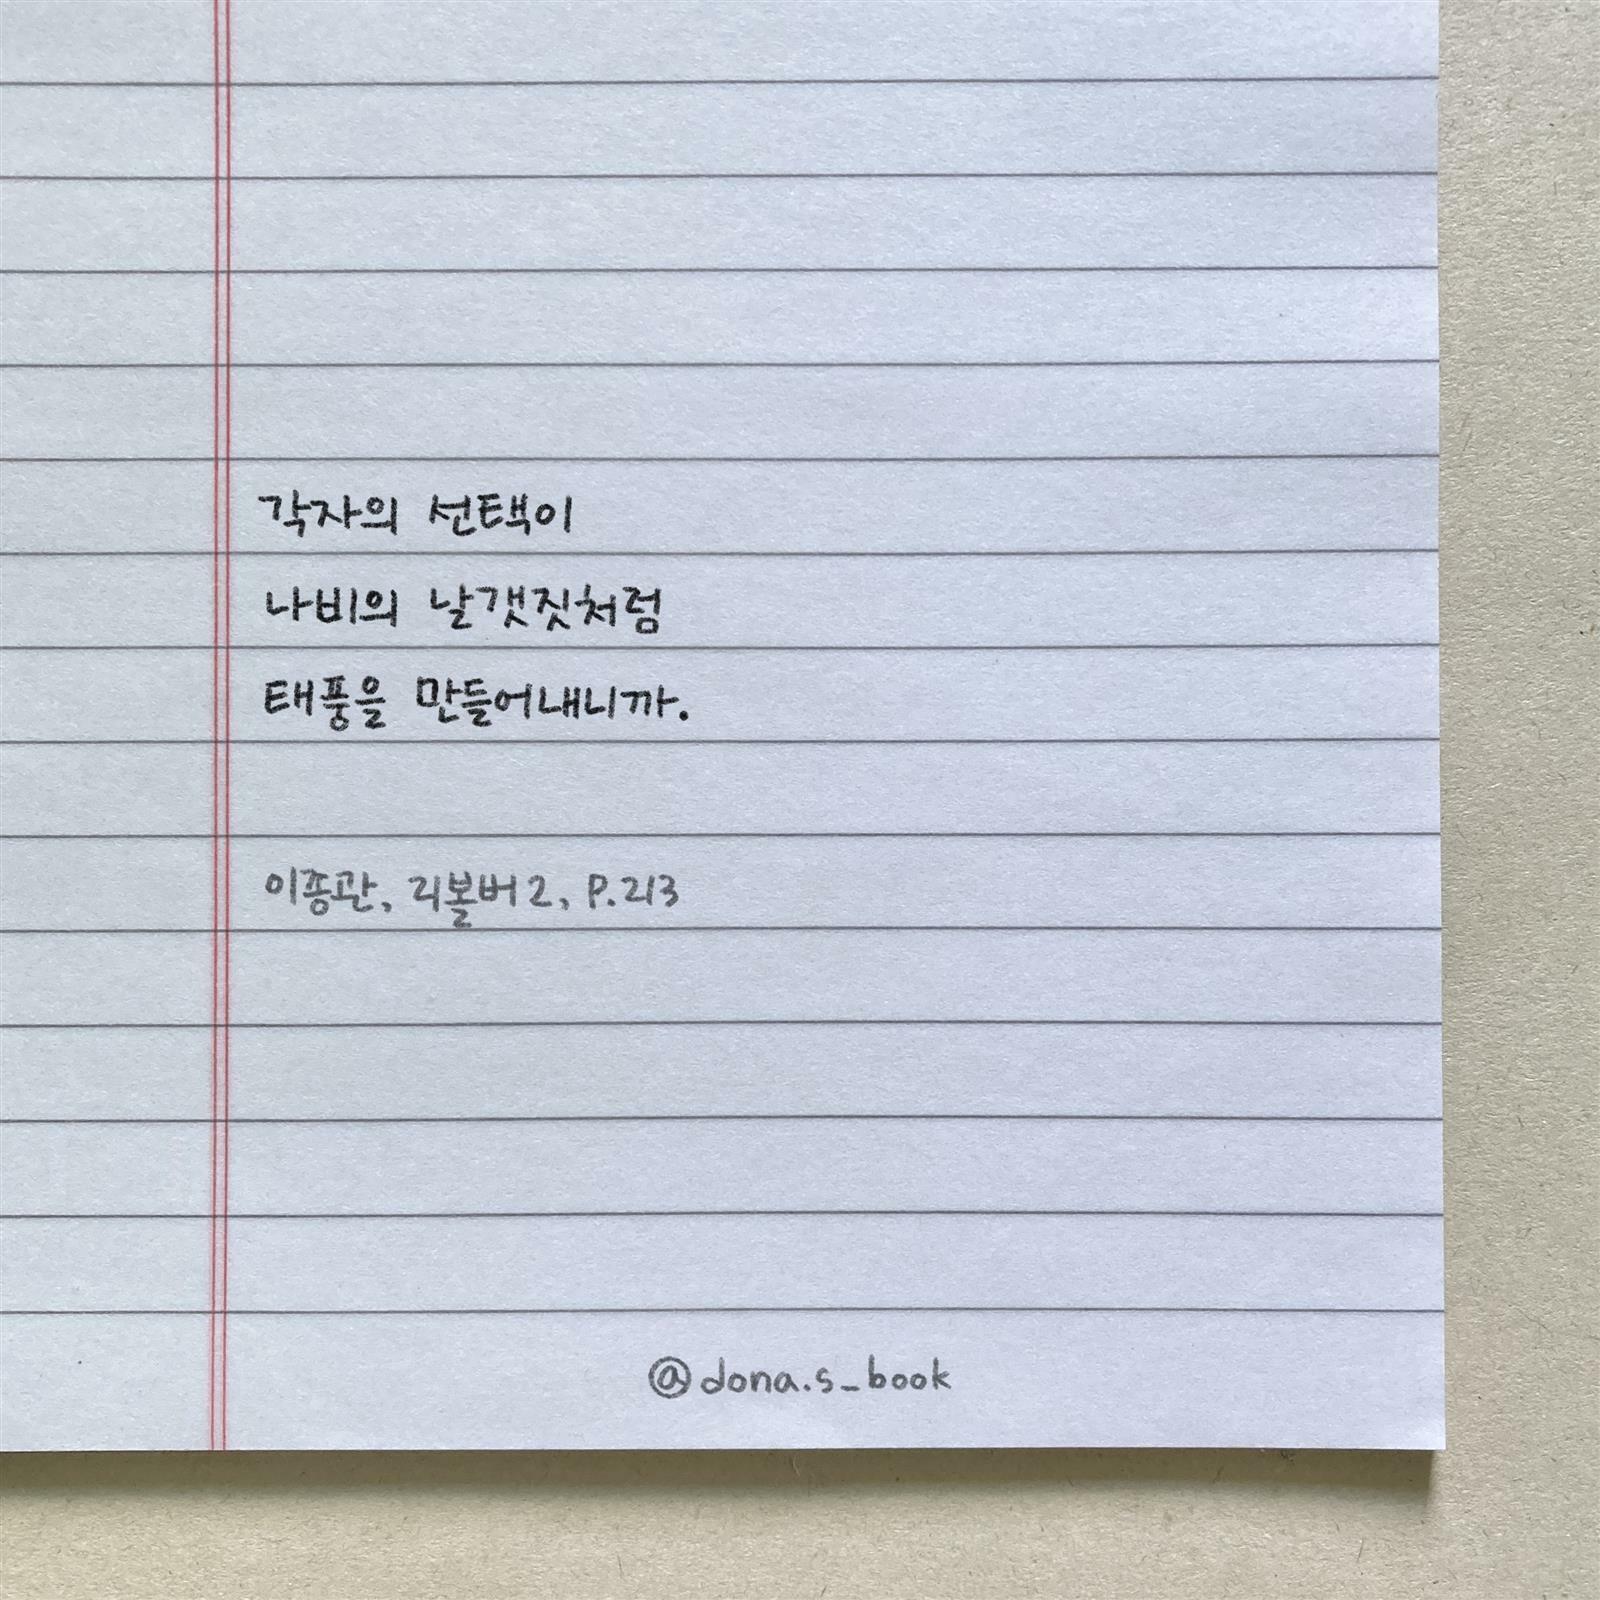 각자의 선택이
나비의 날갯짓처럼
태풍을 만들어내니까.
이종관, 리볼버 2, P.213
@dona.s_book